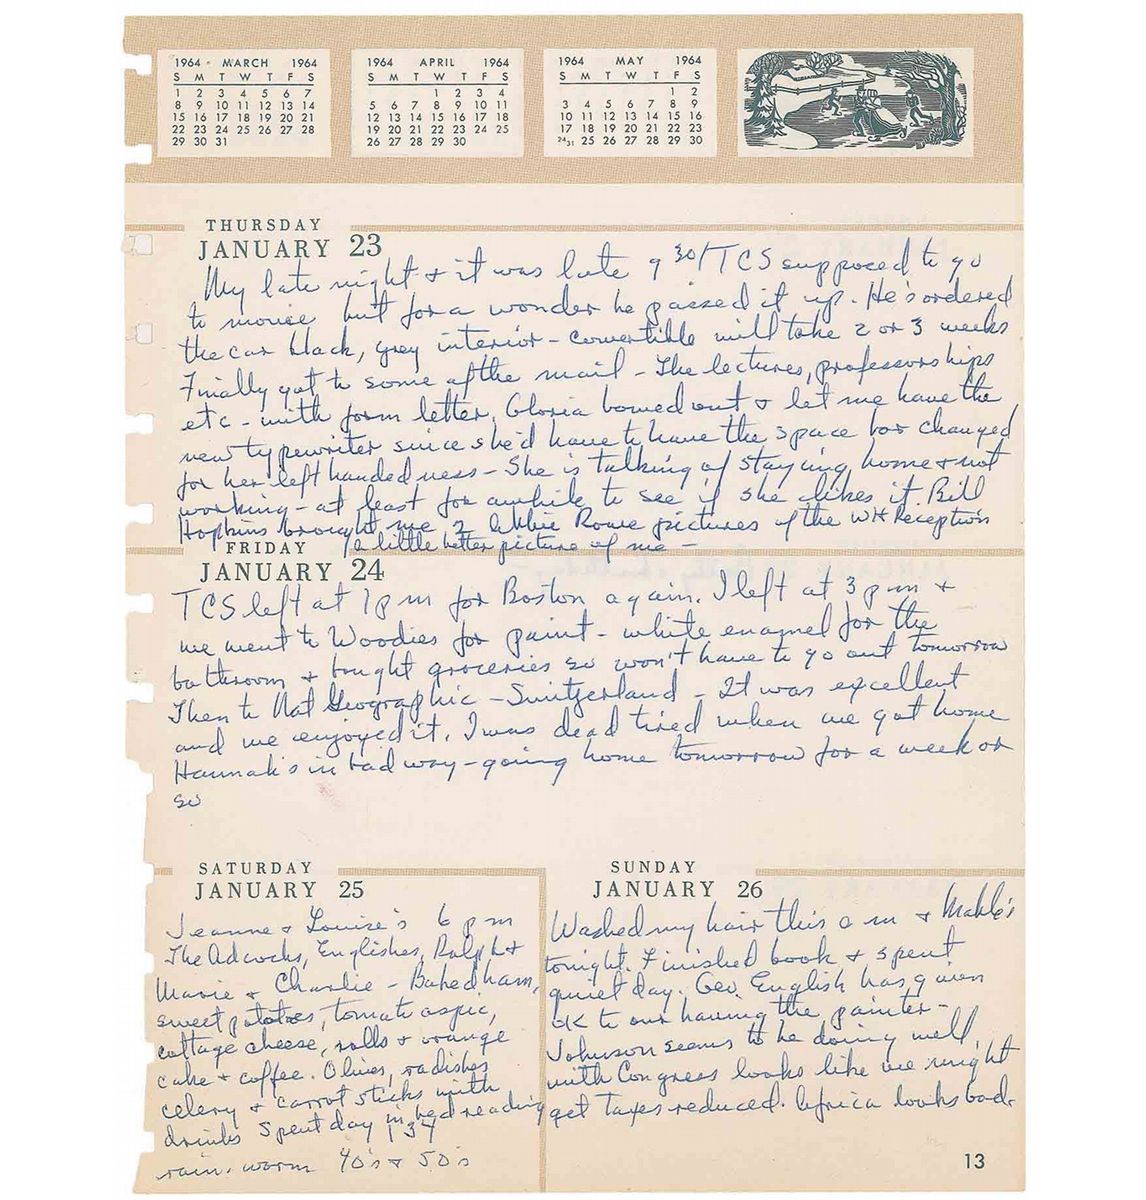 1964 MARCH 1964
S M T W T F S
1 2 3 4 5 6 7
8 9 10 11 12 13 14
15 16 17 18 19 20 21
22 23 24 25 26 27 28
29 30 31
1964 APRIL 1964
S M T W T F S
1 2 3 4
5 6 7 8 9 10 11
12 13 14 15 16 17 18
19 20 21 22 23 24 25
26 27 28 29 30
1964 MAY 1964
S M T W T F S
1 2
3 4 5 6 7 8 9
10 11 12 13 14 15 16
17 18 19 20 21 22 23
24/31 25 26 27 28 29 30
THURSDAY
JANUARY 23
My late night & it was late 9 30/TCS supposed to go
to movie but for a wonder he passed it up. He's ordered
the car black, grey interior - convertible will take 2 or 3 weeks
Finally got to some of the mail - The lectures, professorships
etc - with form letter. Gloria bowed out & let me have the
new typewriter since she'd have to have the space bar changed
for her left handedness - She is talking of staying home & not
working - at least for awhile to see if she likes it. Bill
Hopkins brought me 2 Abbie Rowe pictures of the WH Reception
a little better picture of me -
FRIDAY
JANUARY 24
TCS left at 1 pm for Boston again. I left at 3 pm &
we went to Woodies for paint - white enamel for the
bathroom & bought groceries so won't have to go out tomorrow
Then to Nat Geographic - Switzerland - It was excellent
and we enjoyed it. I was dead tired when we got home
Hannah's in bad way - going home tomorrow for a week or
so
SATURDAY
JANUARY 25
Jeanne & Louise's 6 pm
The Adcocks, Englishes, Ralph &
Marie & Charlie - Baked ham,
sweet potatoes, tomato aspic,
cottage cheese, rolls & orange
cake & coffee. Olives, radishes
celery & carrot sticks with
drinks Spent day in bed reading
137
rain. warm 40's & 50's
SUNDAY
JANUARY 26
Washed my hair this a m & Mable's
tonight. Finished book & spent
quiet day. Geo. English has given
OK to our having the painter -
Johnson seems to be doing well
with Congress looks like we might
get taxes reduced. Africa looks bad.
13